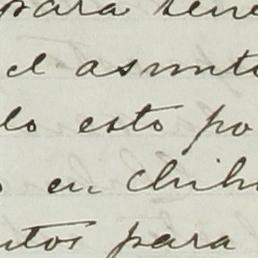 para tene
el asunto
lo esto po
en chih
ntos para